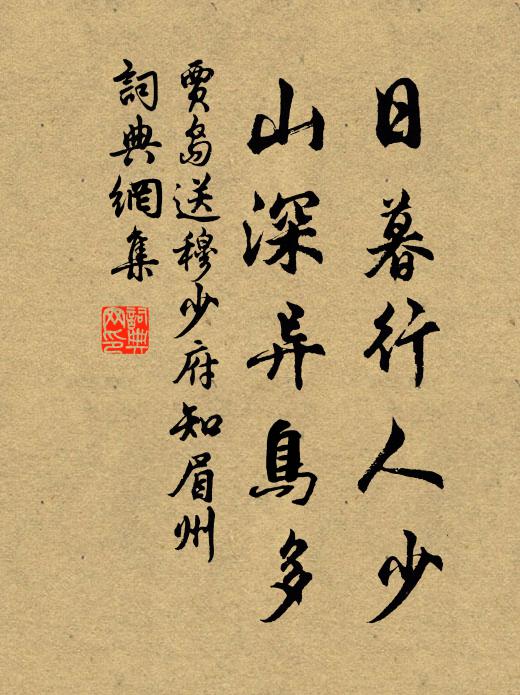 日暮行人少
山深异鳥多
賈島送穆少府知眉州
詞典網集
詞典网印